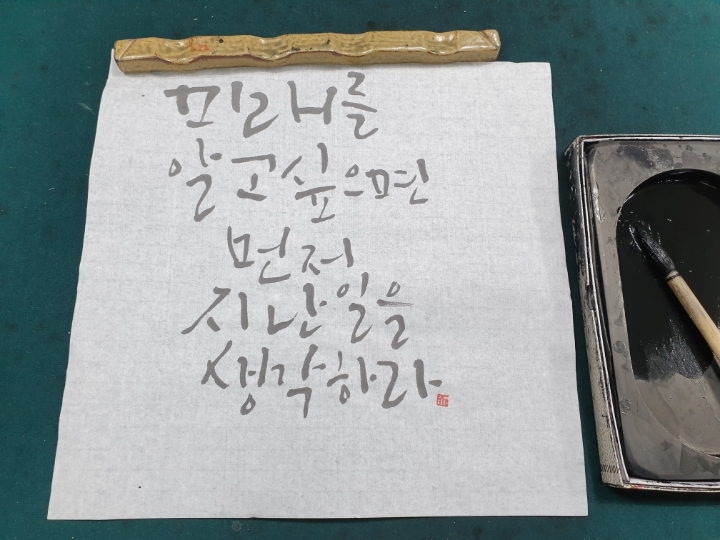 미래를
알고싶으면
먼저
지난일을
생각하라